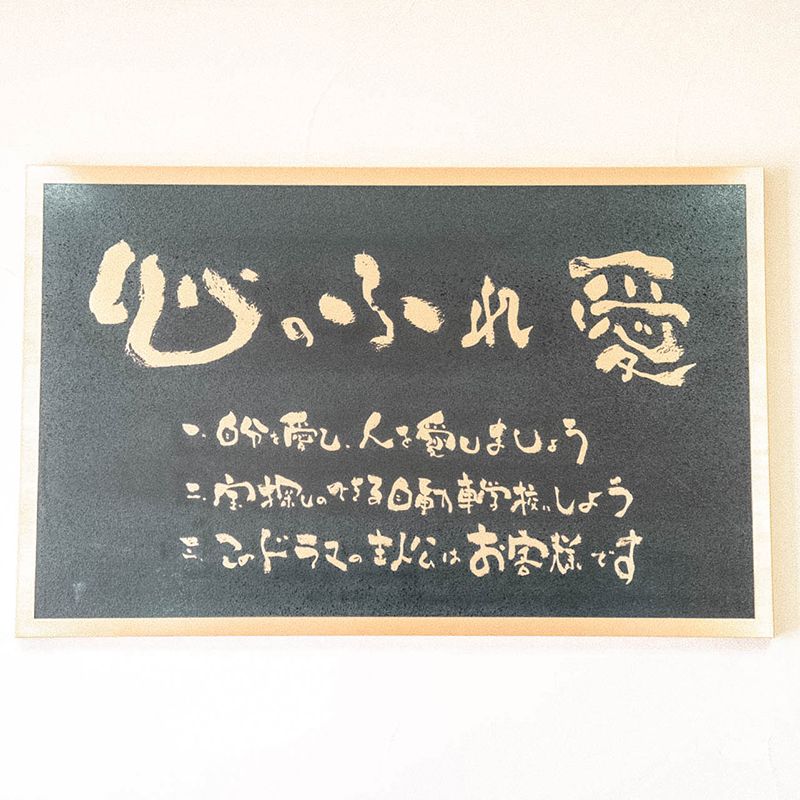 心のふれ愛
一、自分を愛し、人を愛しましょう
二、宝探しのできる自動車学校にしよう
三、このドラマの主人公はお客様です